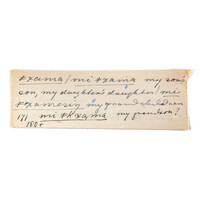 *xama / mi *xama my son's
son, my daughter's daughter / mi
*xamesin my grand children
171 mi *Kxama my grandson?
180